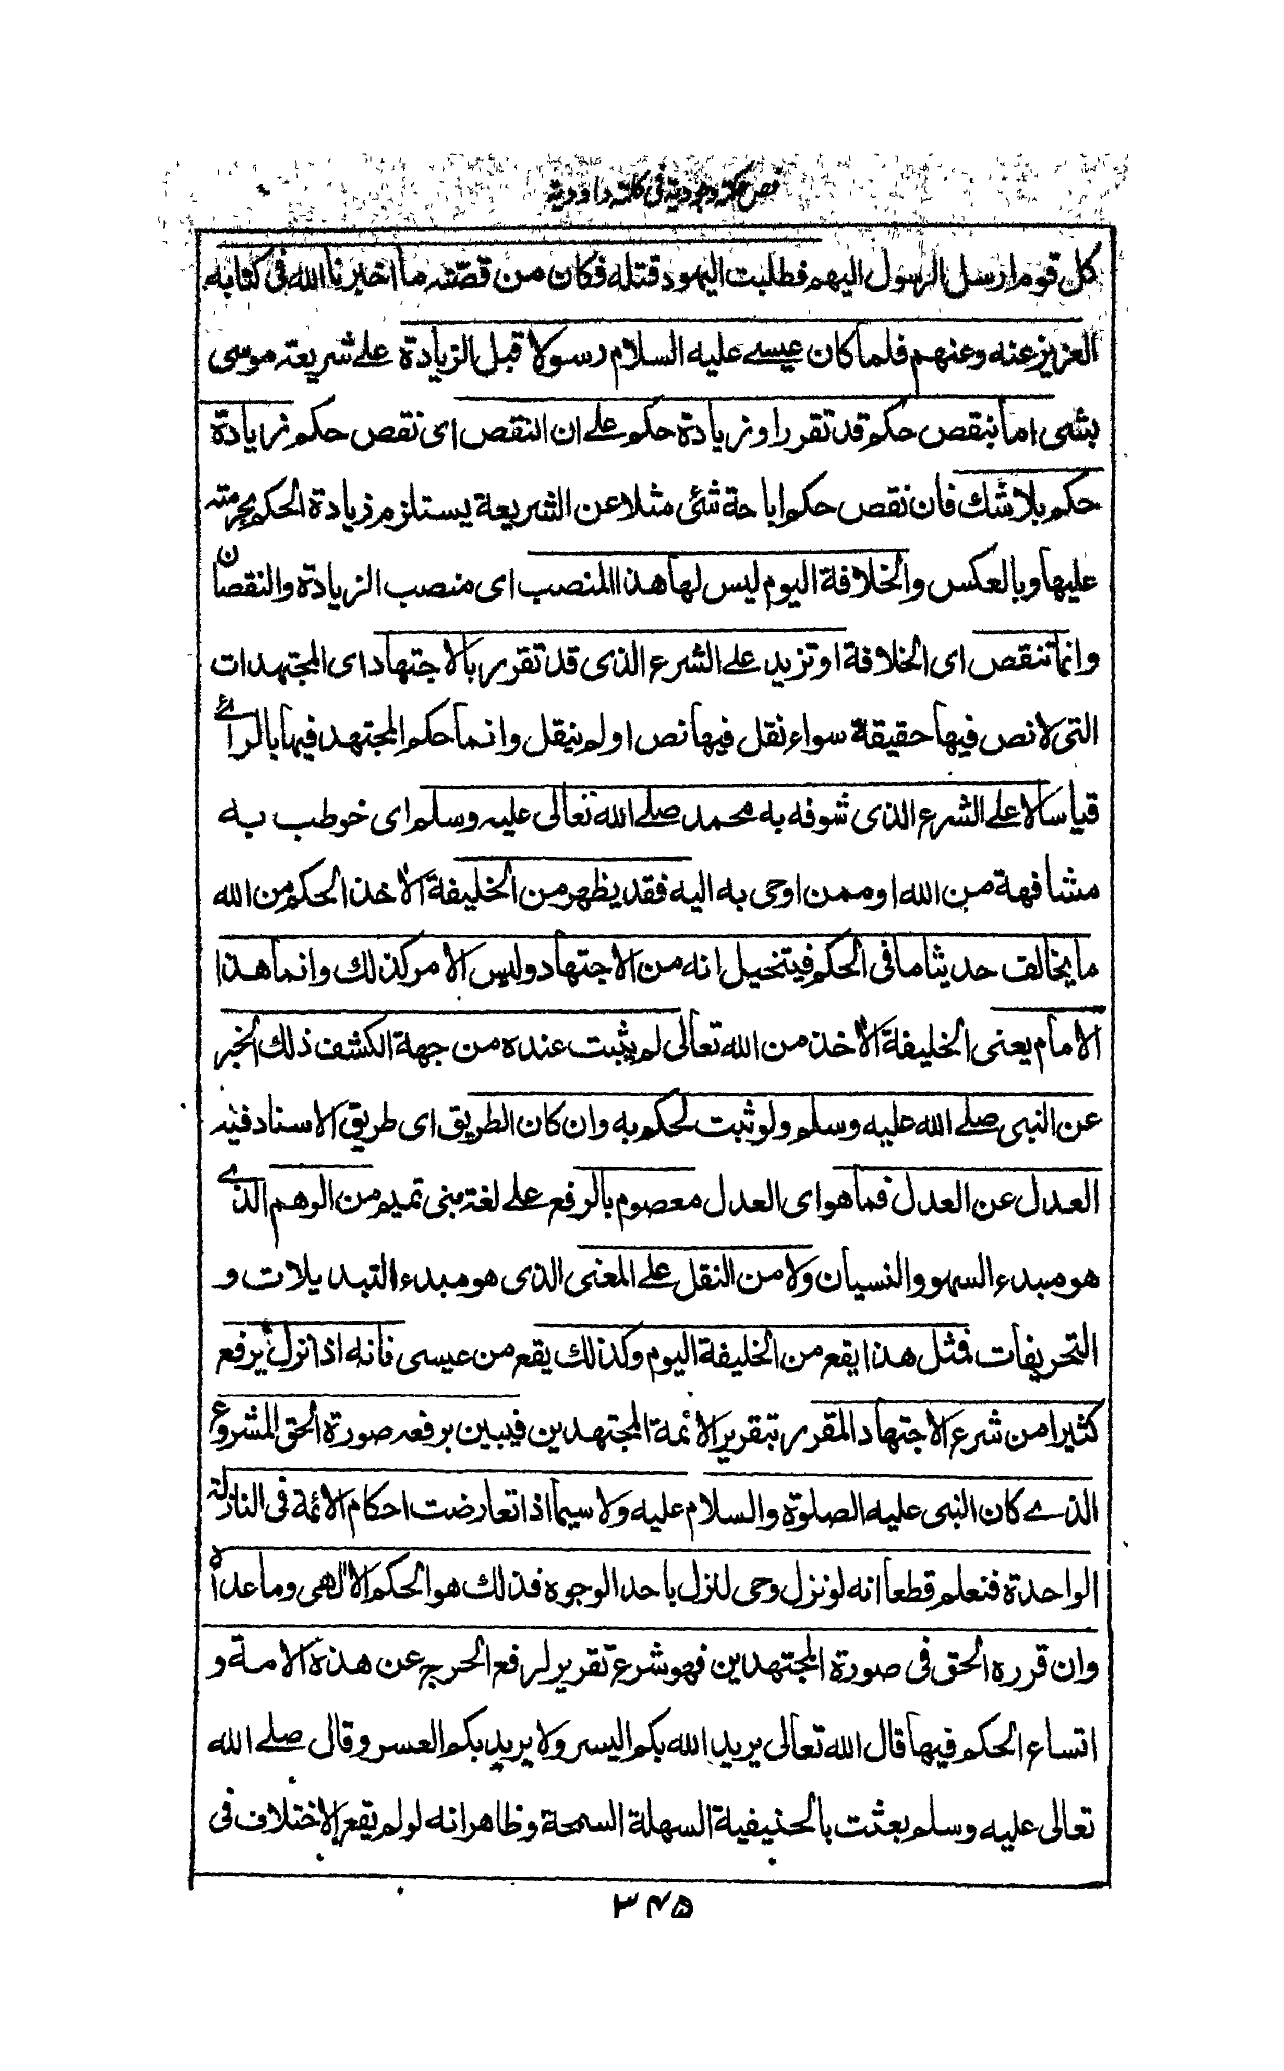 فص حكمة وجودية فى كلمة داودية
كل قوم ارسل الرسول اليهم فطلبت اليهود قتله فكان من قصته ما اخبرنا الله فى كتابه
العزيز عنه وعنهم فلما كان عيسے عليه السلام رسولا قبل الزيادة علے شريعة موسى
بشى اما بنقص حكم قد تقرر او زيادة حكم علے ان النقص اى نقص حكم زيادة
حكم بلا شك فان نقص حكم اباحة شئ مثلا عن الشريعة يستلزم زيادة الحكم بحرمته
عليها وبالعكس والخلافة اليوم ليس لها هذا المنصب اى منصب الزيادة والنقصان
وانما تنقص اى الخلافة او تزيد علے الشرع الذى قد تقرر بالاجتهاد اى المجتهدات
التى لا نص فيها حقيقة سواء نقل فيها نص او لم ينقل وانما حكم المجتهد فيها بالرائے
قياسا لا علے الشرع الذى شوفه به محمد صلے الله تعالى عليه وسلم اى خوطب به
مشافهة من الله او ممن اوحى به اليه فقد يظهر من الخليفة الآخذ الحكم من الله
ما يخالف حديثا ما فى الحكم فيتخيل انه من الاجتهاد وليس الامر كذلك وانما هذا
الامام يعنى الخليفة الآخذ من الله تعالى لم يثبت عنده من جهة الكشف ذلك الخبر
عن النبى صلے الله عليه وسلم ولو ثبت لحكم به وان كان الطريق اى طريق الاسناد فيه
العدل عن العدل فما هو اى العدل معصوم بالرفع علے لغة بنى تميم من الوهم الذے
هو مبدء السهو والنسيان ولا من النقل علے المعنى الذى هو مبدء التبديلات و
التحريفات فمثل هذا يقع من الخليفة اليوم وكذلك يقع من عيسى فانه اذا نزل يرفع
كثيرا من شرع الاجتهاد المقرر بتقرير الائمة المجتهدين فيبين برفعه صورة الحق المشروع
الذے كان النبى عليه الصلوة والسلام عليه ولا سيما اذا تعارضت احكام الائمة فى النازلة
الواحدة فنعلم قطعا انه لو نزل وحى لنزل باحد الوجوه فذلك هو الحكم الالهى وما عداه
وان قرره الحق فى صورة المجتهدين فهو شرع تقرير لرفع الحرج عن هذه الامة و
اتساع الحكم فيها قال الله تعالى يريد الله بكم اليسر ولا يريد بكم العسر وقال صلے الله
تعالى عليه وسلم بعثت بالحنيفية السهلة السمحة وظاهر انه لو لم يقع الاختلاف فى
۳۴۵